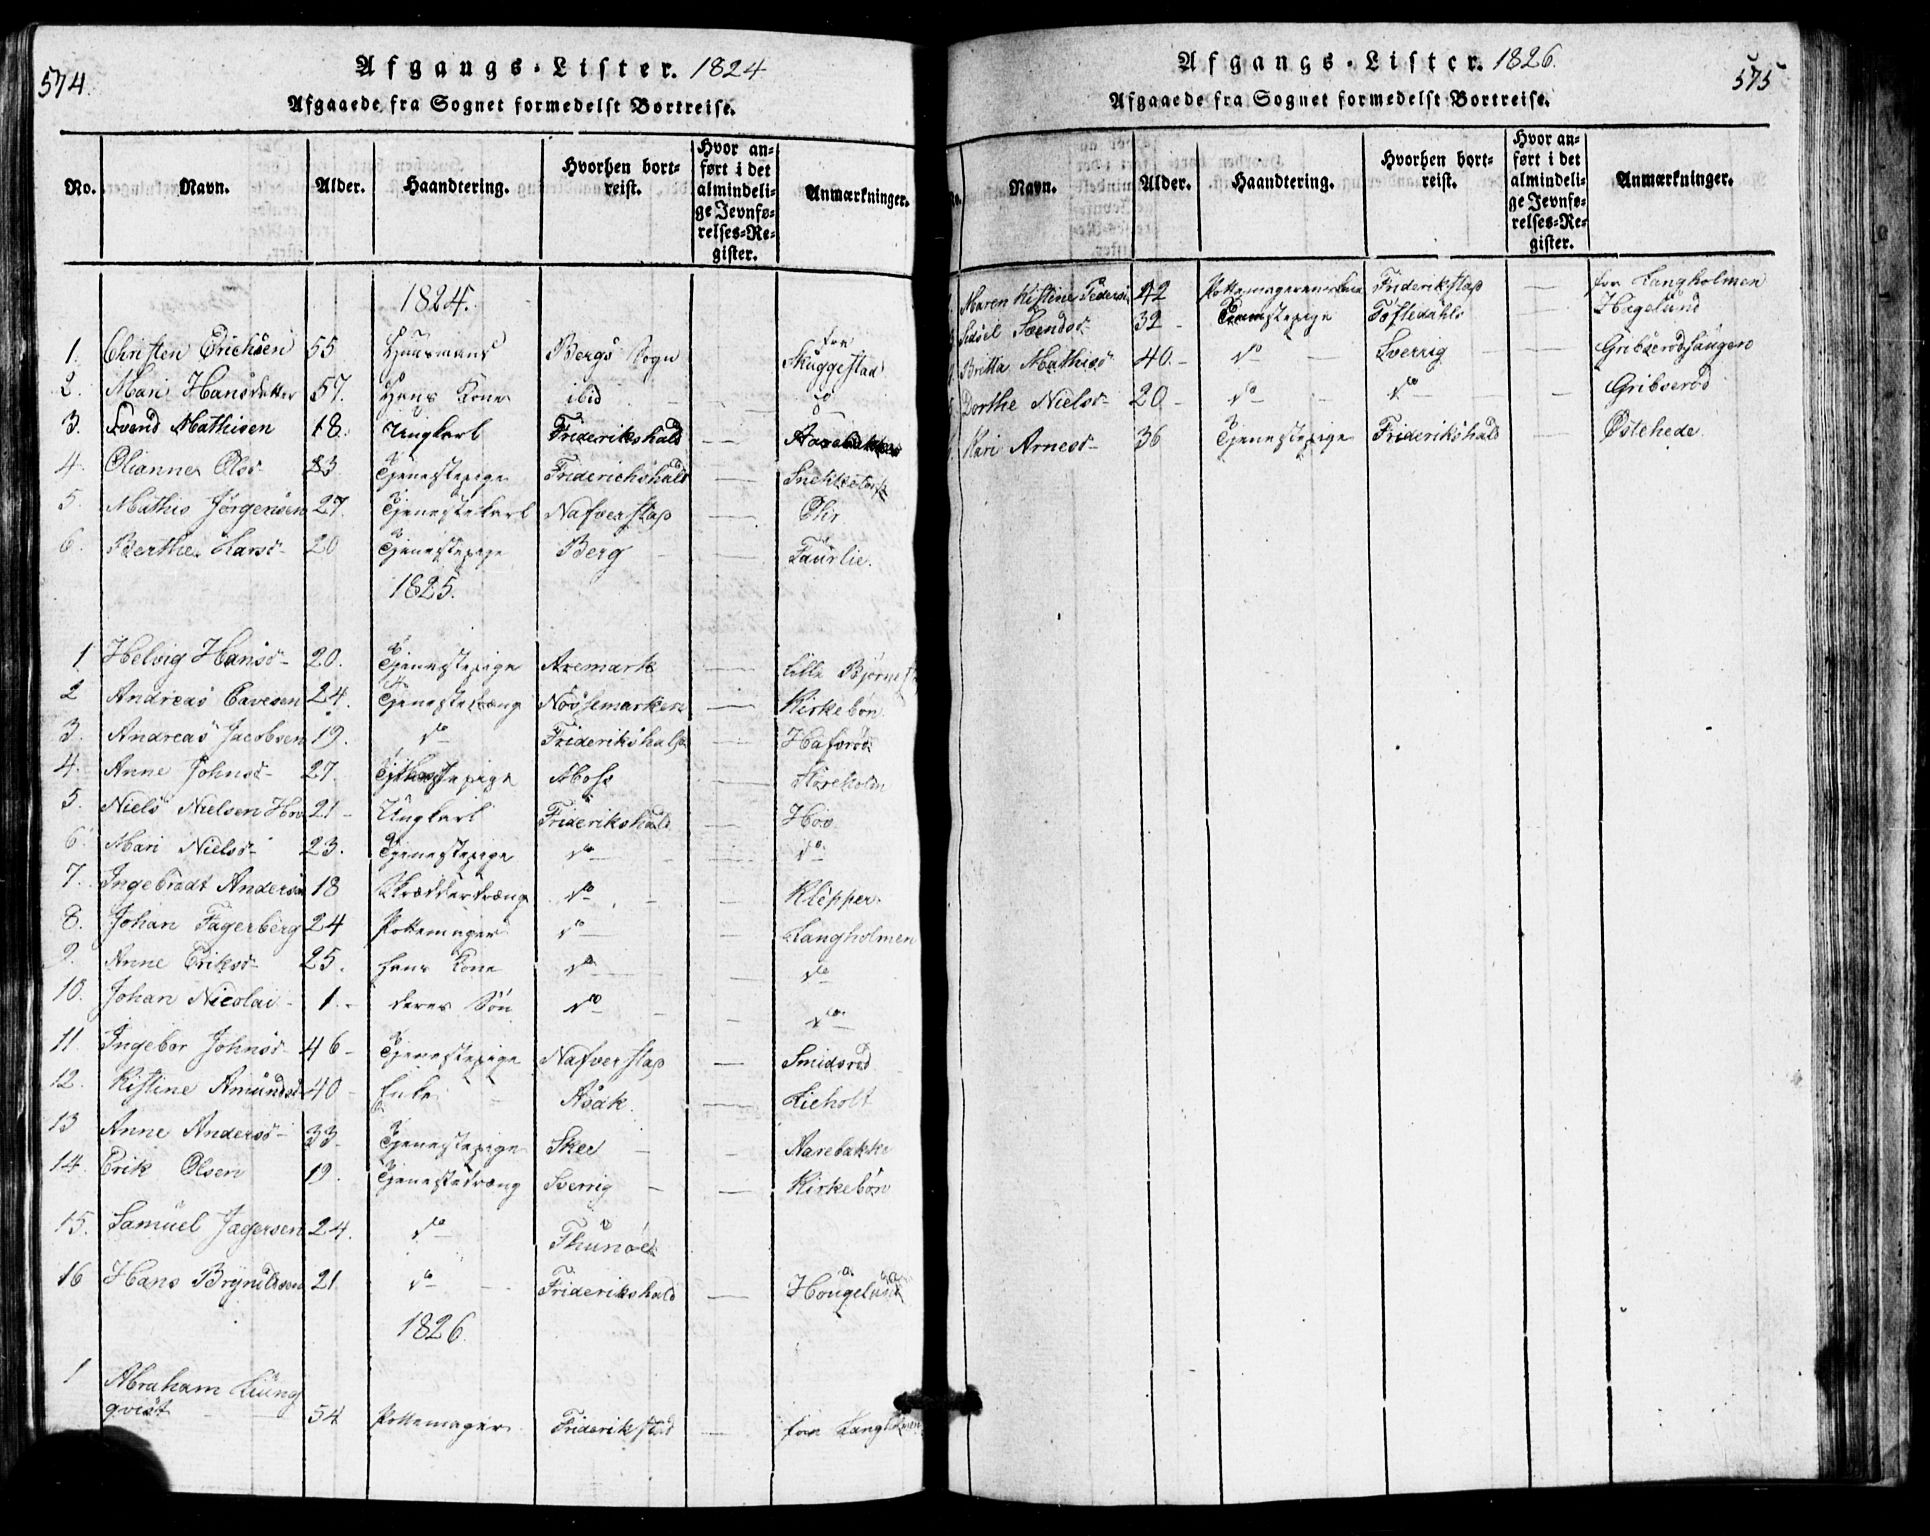 574.
Afgangs-Lister. 1824
Afgaaede fra Sognet formedelst Bortreise.
No. Navn. Alder. Haandtering. Hvorhen bortreist. Hvor anført i det almindelige Jevnførelses-Register. Anmærkninger.
1824.
1. Christen Erichsen 55 Huusmand Bergs Sogn fra Skuggestad
2. Mari Hansdatter 57. Hans Kone ibid do
3. Svend Mathisen 18. Ungkarl Friderikshald Aarebakken
4. Olianne Olsd 23 Tjenestepige Friderichshald
5. Mathis Jørgensen 27. Tjenestekarl Nafverstad
6. Berthe Larsd 20 Tjenestepige Berg Faurlie.
1825.
1 Helvig Hansd 20. Tjenestepige Aremark Lille
2 Andreas 24. Tjenestedreng Kirkebøn
3. Andreas Jacobsen 19. do Friderikshald Hafsrød
4. Anne Johnsd 27. Tjenestepige Moss
5. Niels Nielsen Hov 21 Ungkarl Friderikshald Hov
6. Mari Nielsd 23. Tjenestepige do do
7. Ingebradt Andersen 18 Skrædderdreng do Klepper
8. Johan Fagerberg 24 Pottemager do Langholmen
9. Anne Eriksd 25. hans Kone do do
10. Johan Nicolai 1. deres Søn do do
11. Ingebor Johnsd 46 Tjenestepige Nafverstad Smidsrød
12. Kistine Amundsd 40 Enke Asak Lieholt
13 Anne Andersd 33. Tjenestepige Skee Aarebakke
14. Erik Olsen 19. Tjenestedreng Sverrig Kirkebøn
15. Samuel Jagersen 24. do
16 Hans Brynildsen 21 do Friderikshald Hougelund
1826.
1 Abraham Liung
qvist 54 Pottemager Friderikstad fra Langholmen
575
Afgangs-Lister. 1826.
Afgaaede fra Sognet formedelst Bortreise.
No. Navn. Alder. Haandtering. Hvorhen bortreist. Hvor anført i det almindelige Jevnførelses-Register. Anmærkninger.
Maren Kistine Pedersd 42 Friderikstad fra Langholmen
Sidsel Svendsd 32 Tjenestepige Tøftedahls Hagelund
Britta Mathisd 40. do Sverrig Gribserødhaugen
Dorthe Nielsd 20 do do Gribserød
Kari Arnesd 36 Tjenestepige Friderikshald Østehede.